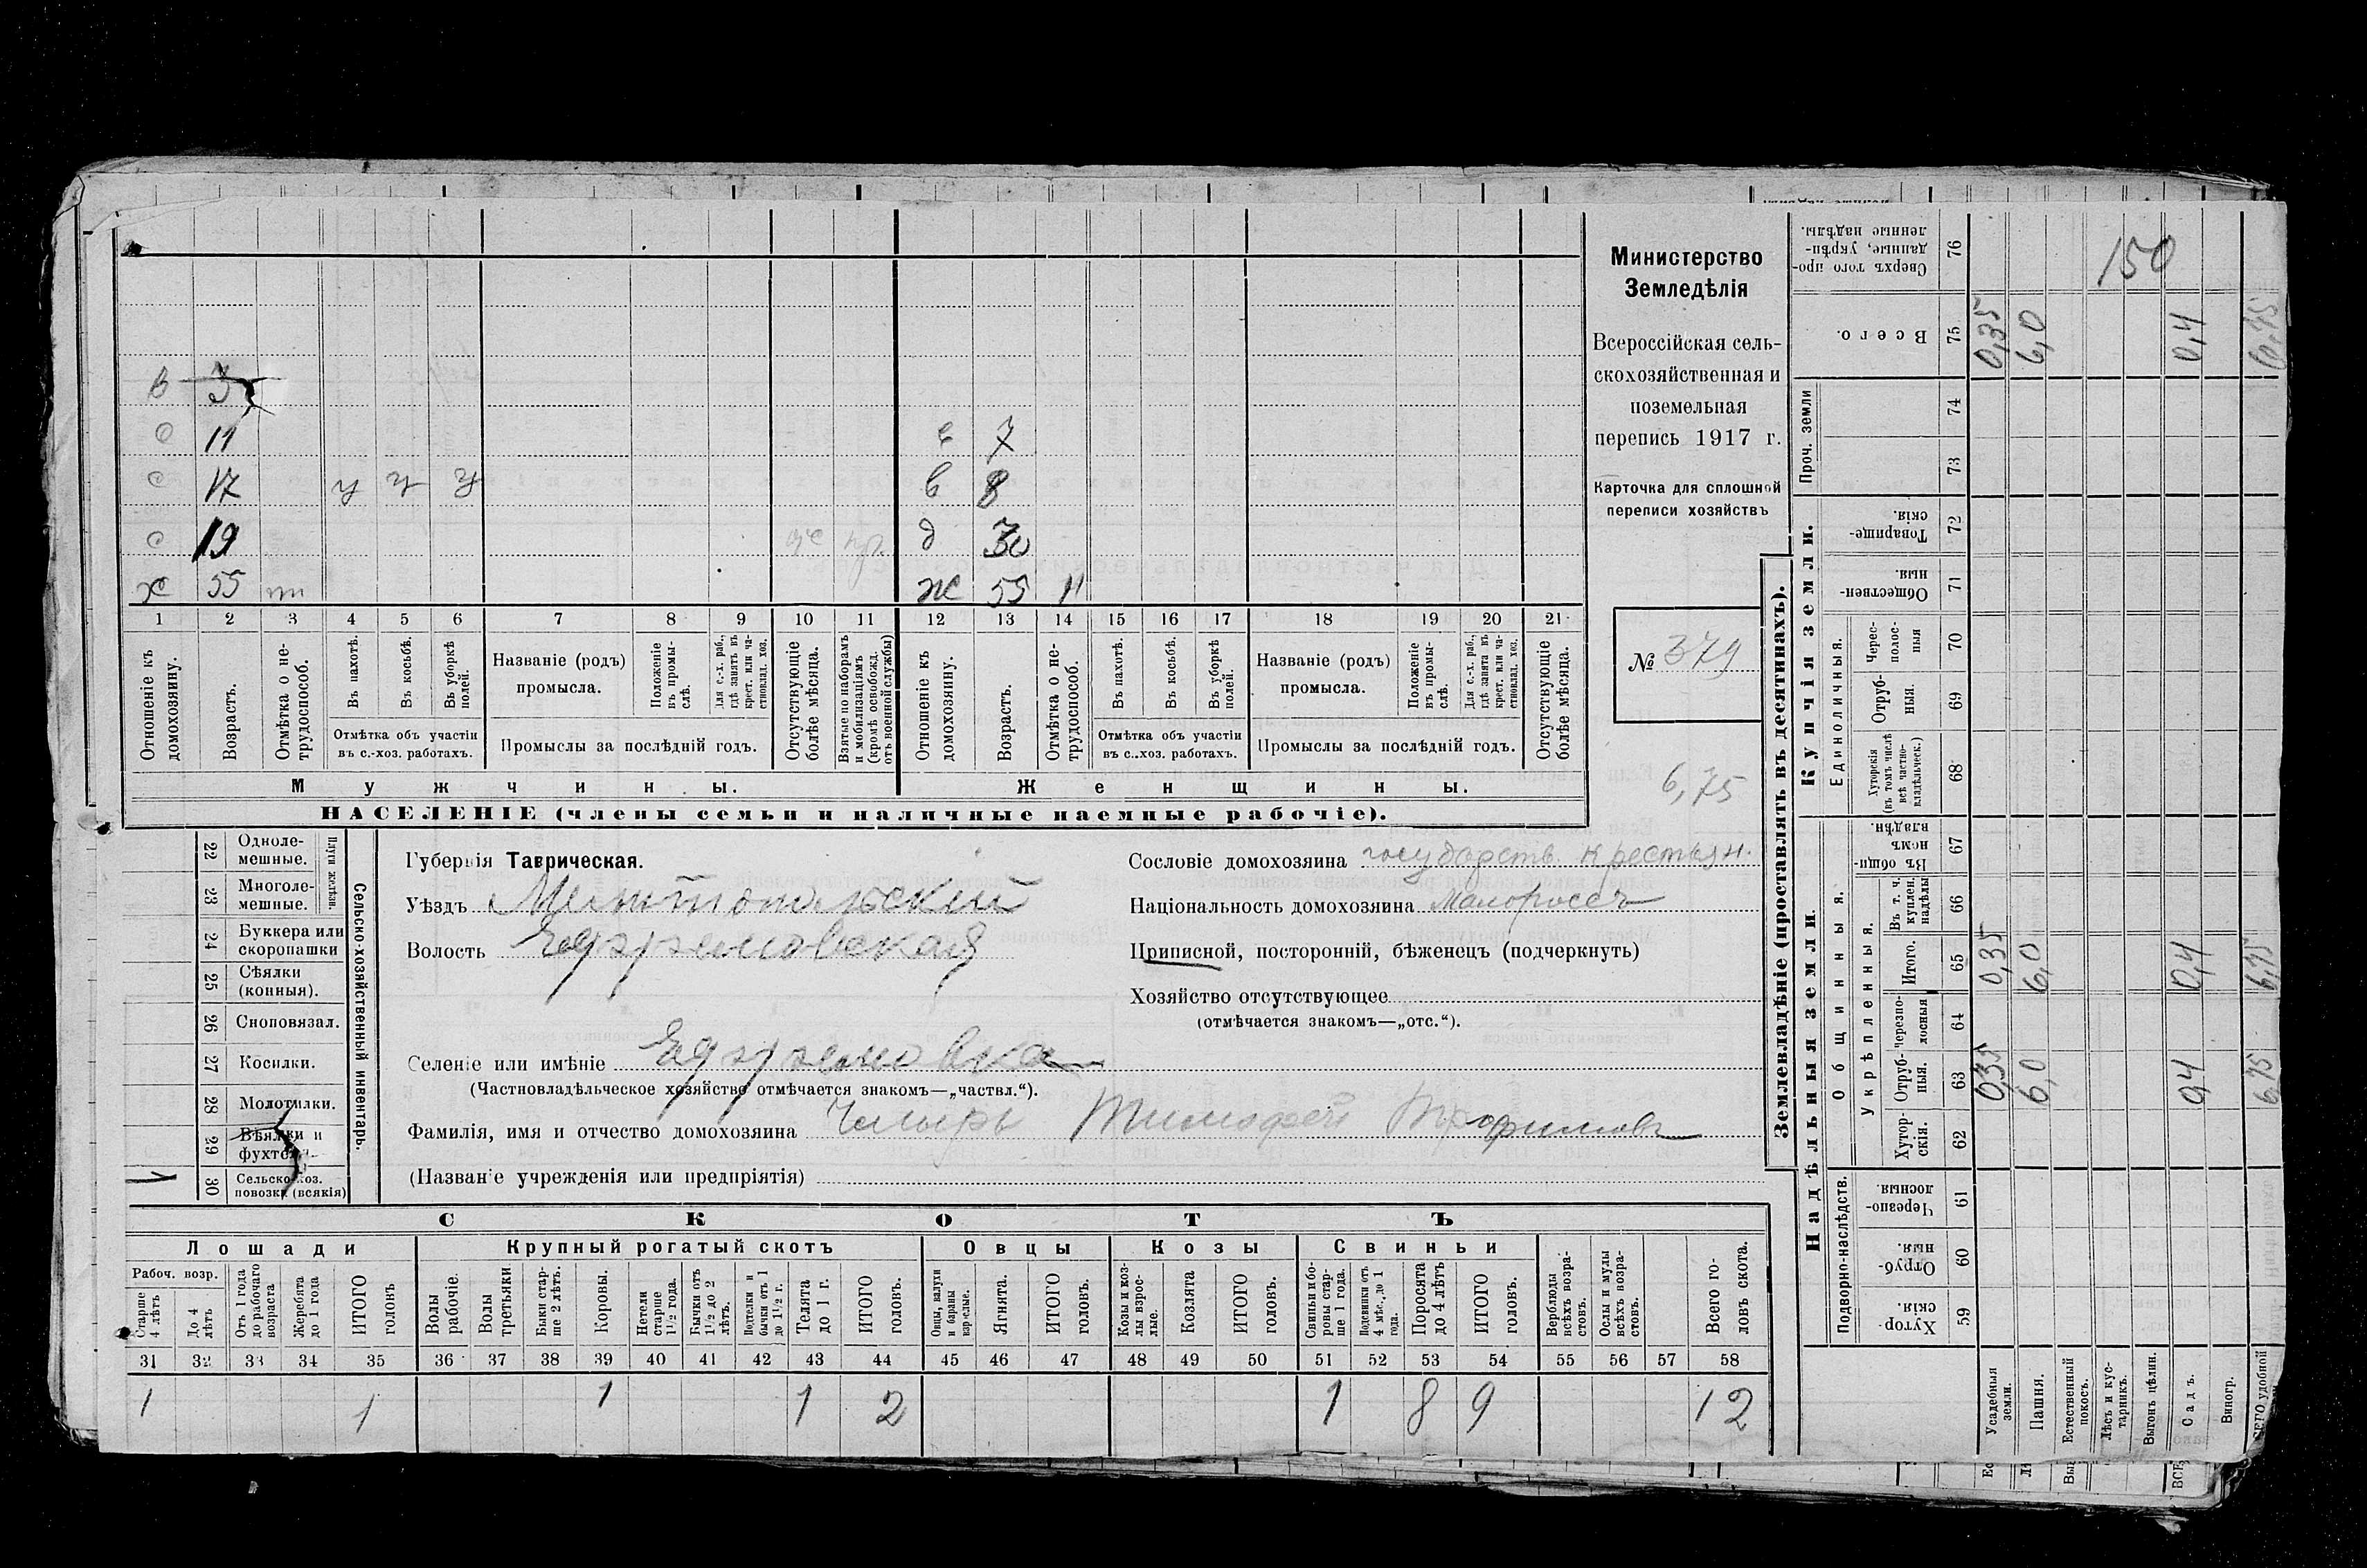 Министерство
Земледѣлія
Всероссійская сель-
скохозяйственная и
поземельная
перепись 1917 г.
Карточка для сплошной
переписи хозяйствъ
№ 379
6,75
В 3
С 11
С 17 у у у
С 19
Х 55
с 7
в 8
д 30
Ж 55 н
1 2 3 4 5 6 7 8 9 10 11 12 13 14 15 16 17 18 19 20 21
Отношеніе къ домохозяину.
Возрастъ.
Отмѣтка о не-трудоспособ.
Въ пахотѣ.
Въ косьбѣ.
Въ уборкѣ полей.
Отмѣтка объ участіи
въ с.-хоз. работахъ.
Названіе (родъ)
промысла.
Положеніе въ промы-слѣ.
Для с.-х. раб., гдѣ занятъ въ крест. или ча-стновлад. хоз.
Промыслы за послѣдній годъ.
Отсутствующіе болѣе мѣсяца.
Взятые по наборамъ и мобилизаціямъ (кромѣ освобожд. отъ военной службы)
Отношеніе къ домохозяину.
Возрастъ.
Отмѣтка о не-трудоспособ.
Въ пахотѣ.
Въ косьбѣ.
Въ уборкѣ полей.
Отмѣтка объ участіи
въ с.-хоз. работахъ.
Названіе (родъ)
промысла.
Положеніе въ промы-слѣ.
Для с.-х. раб., гдѣ занята въ крест. или ча-стновлад. хоз.
Промыслы за послѣдній годъ.
Отсутствующіе болѣе мѣсяца.
Мужчины. Женщины.
НАСЕЛЕНІЕ (члены семьи и наличные наемные рабочіе).
22 Одноле-мешные.
23 Многоле-мешные.
Плуги желѣзн.
24 Буккера или скоропашки
25 Сѣялки (конныя).
26 Сноповязал.
27 Косилки.
28 Молотилки.
29 Вѣялки и фухтеля.
30 Сельско-хоз. повозки (всякія)
Сельско-хозяйственный инвентарь.
Губернія Таврическая.
Уѣздъ Мелитопольскій
Волость Ефремовская
Селеніе или имѣніе Ефремовка
(Частновладѣльческое хозяйство отмѣчается знакомъ—„частвл.“).
Фамилія, имя и отчество домохозяина Тимофей Трофимовъ
(Названіе учрежденія или предпріятія)
Сословіе домохозяина государств. крестьян.
Національность домохозяина малороссъ
Приписной, посторонній, бѣженецъ (подчеркнуть)
Хозяйство отсутствующее
(отмѣчается знакомъ—„отс.“).
СКОТЪ
Лошади Крупный рогатый скотъ Овцы Козы Свиньи
Рабоч. возр.
Старше 4 лѣтъ
До 4 лѣтъ
Отъ 1 года до рабочаго возраста
Жеребята до 1 года
ИТОГО головъ
Волы рабочіе.
Волы третьяки
Быки стар-ше 2 лѣтъ.
Коровы.
Нетели старше 1½ года.
Бычки отъ 1½ до 2 лѣтъ.
Подтелки и бычки отъ 1 до 1½ г.
Телята до 1 г.
ИТОГО головъ.
Овцы, валухи и бараны взрослые.
Ягнята.
ИТОГО головъ.
Козы и коз-лы взрос-лые.
Козлята
ИТОГО головъ.
Свиньи и бо-ровы стар-ше 1 года.
Подсвинки отъ 4 мѣс. до 1 года.
Поросята до 4 лѣтъ
ИТОГО головъ.
Верблюды всѣхъ возра-стовъ.
Ослы и мулы всѣхъ возра-стовъ.
Всего го-ловъ скота.
31 32 33 34 35 36 37 38 39 40 41 42 43 44 45 46 47 48 49 50 51 52 53 54 55 56 57 58
1 1 1 1 2 1 8 9 12
Землевладѣніе (проставлять въ десятинахъ).
Надѣльныя земли. Купчія земли. Проч. земли
Подворно-наслѣдств.
Общинныя.
Укрѣпленныя.
Единоличныя.
59 Хутор-скія
60 Отруб-ныя.
61 Черезпо-лосныя.
62 Хутор-скія.
63 Отруб-ныя.
64 Черезпо-лосныя
65 Итого.
66 Въ т. ч. куплен. надѣлы
67 Въ общи-номъ владѣн.
68 Хуторскія (въ томъ числѣ всѣ частно-владѣльческ.)
69 Отруб-ныя.
70 Черес-полос-ныя
71 Обществен-ныя.
72 Товарище-скія.
73
74
75 Всего.
76 Сверхъ того про-данные, укрѣп-ленные надѣлы.
Усадебныя земли. 0,35 0,35 0,35
Пашня. 6,0 6,0 6,0
Естественный покосъ.
Лѣсъ и кус-тарникъ.
Выгонъ цѣлин.
Садъ. 0,4 0,4 0,4
Виногр.
6,75 6,75 6,75
150